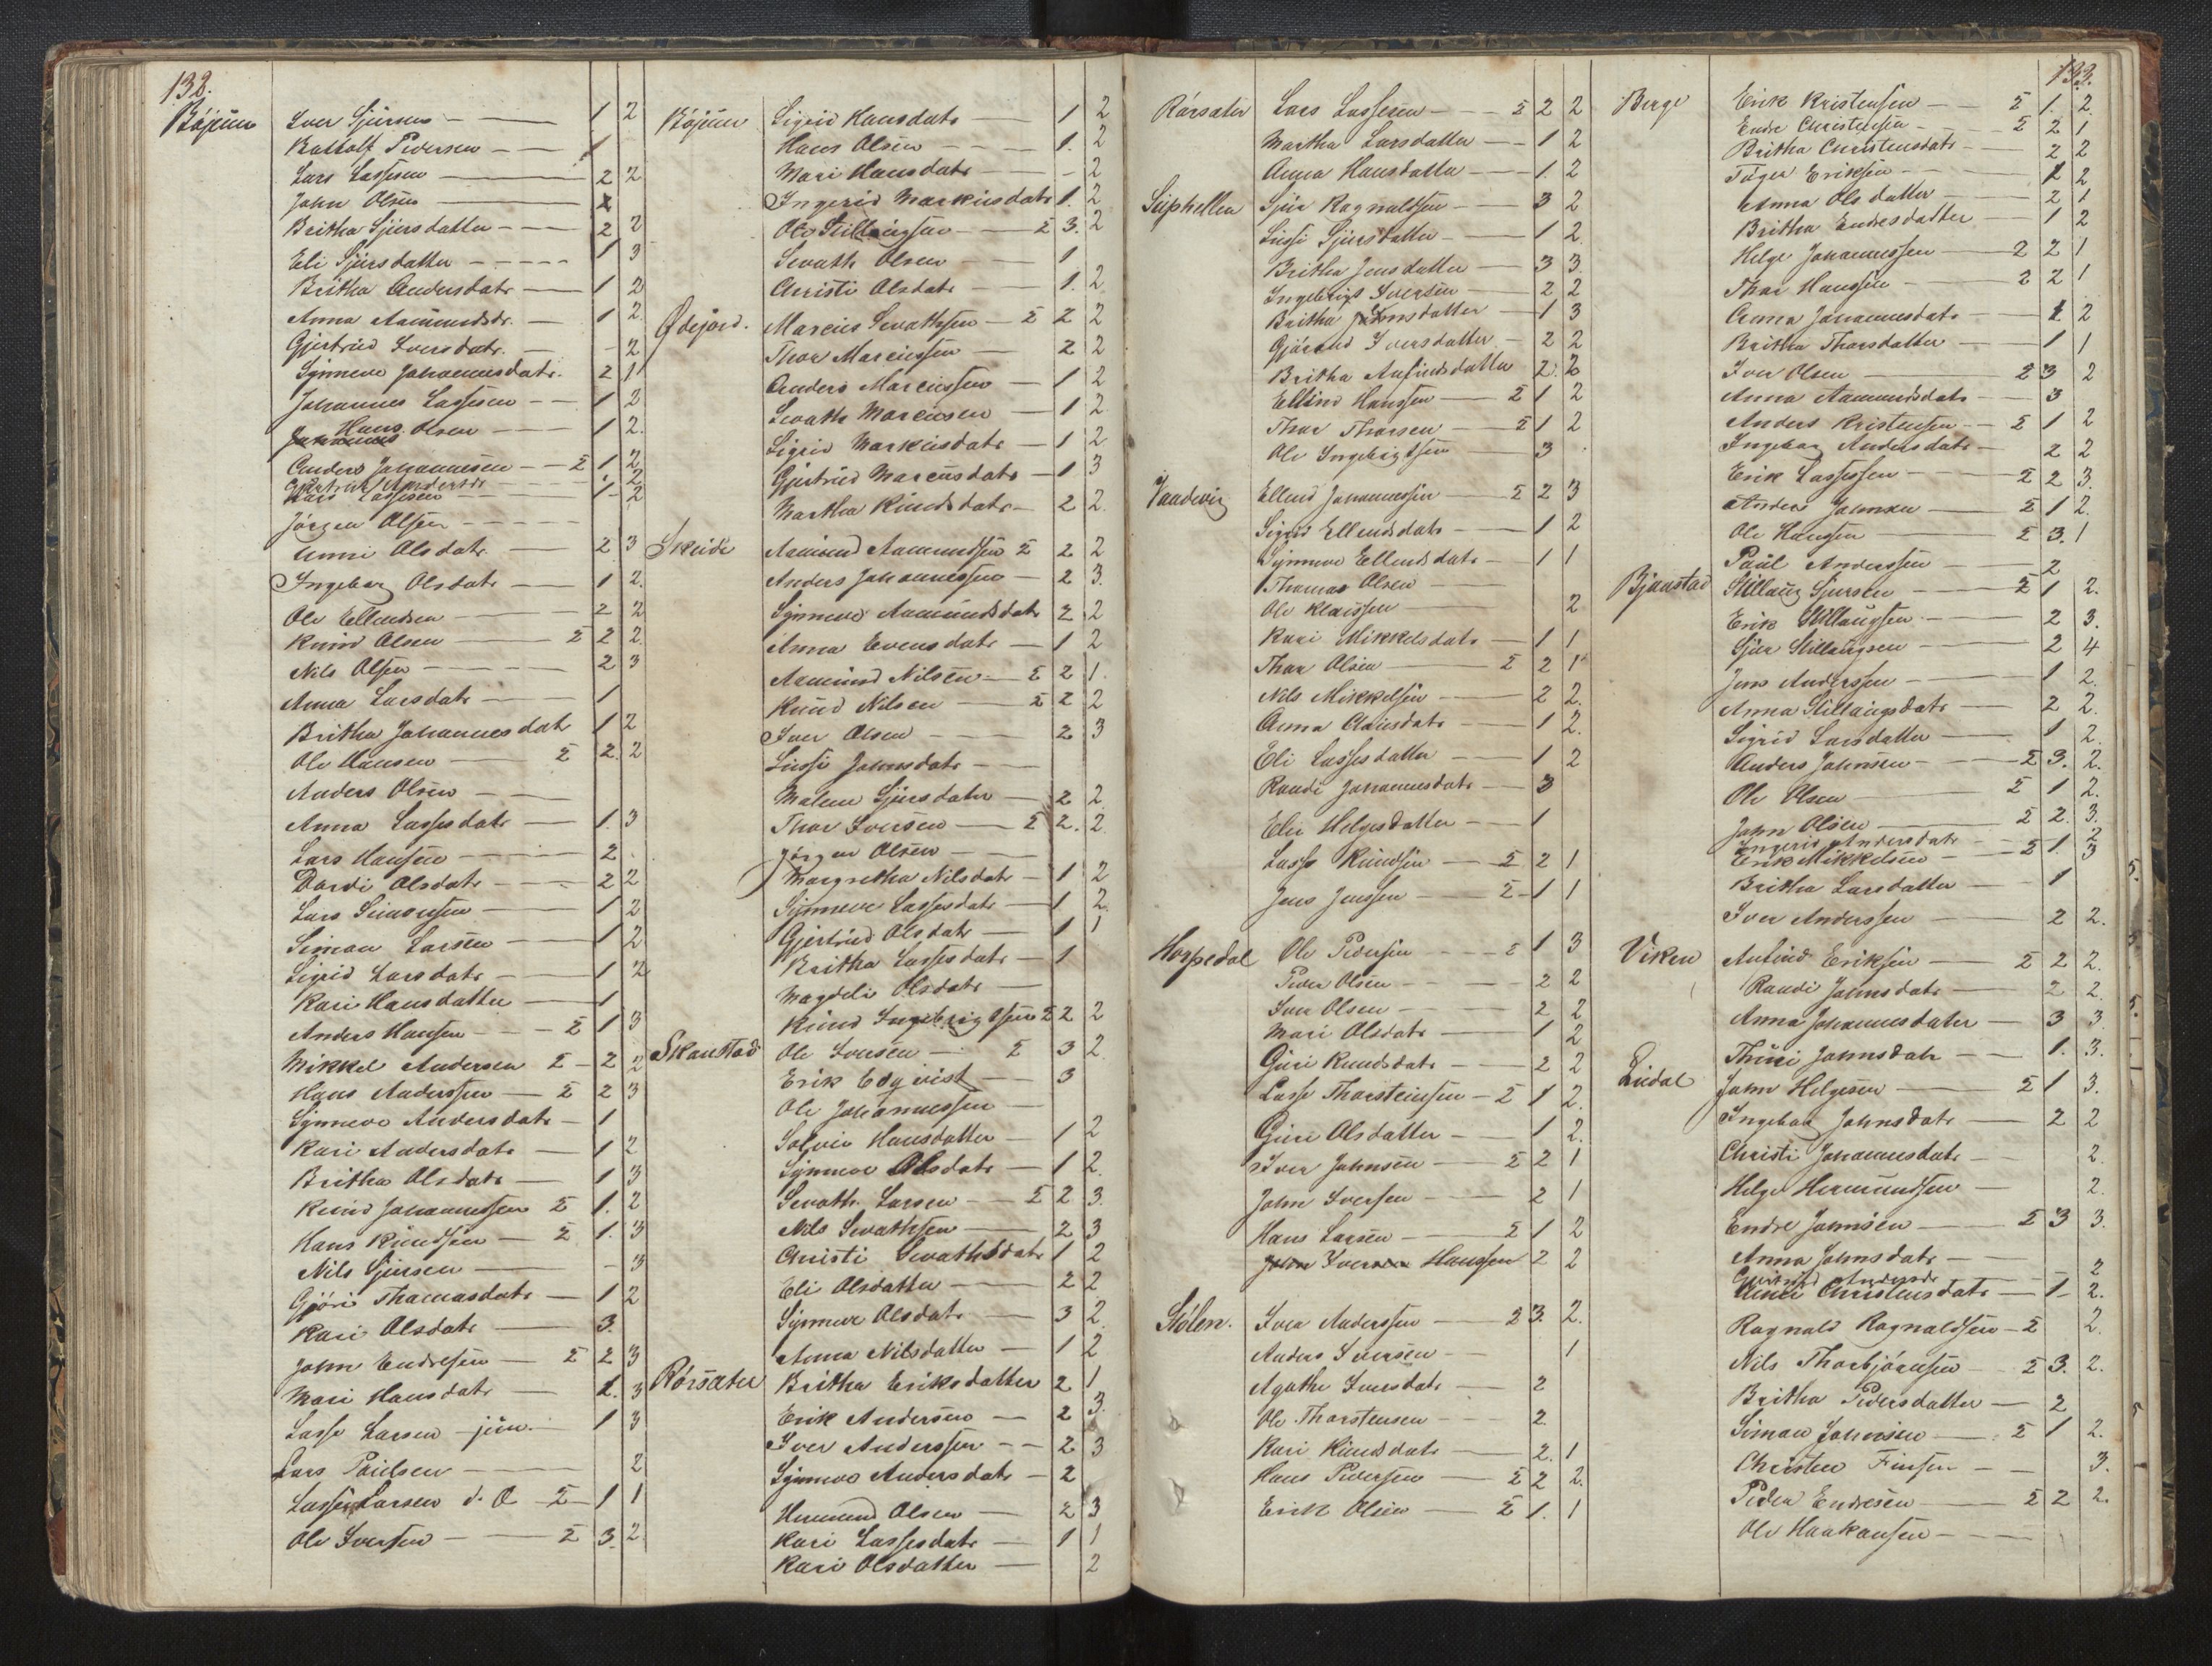 132.
Böjum Iver Sjursen — 1 2
Botholf Pedersen — 1
Lars Lassesen — 2 2
John Olsen — 2
Britha Sjursdatter — 2 2
Eli Sjursdatter — 1 3
Britha Andersdatr — 1 2
Anna Aamundsdr. — 1 2
Gjertrud Iversdatr. — - 2
Synneve Johannesdatr. 2 1
Johannes Lassesen — 1 2
Johannes Hans Olsen — 1 2.
Anders Johannesen — 2 1 2
Gjertrud Andersdr — 2
Lars Lassesen — 1 - 2
Jörgen Olsen —
Unni Olsdatr. — 2 3
Ingebor Olsdatr — 1 2.
Ole Ellendsen — 2 2
Knud Olsen — 2 2 2.
Nils Olsen — 2 3
Anna Larsdatr — 1
Britha Johannesdatr 1 2
Ole Hansen — 2 2. 2
Anders Olsen —
Anna Lassesdatr — 1. 3
Lars Hansen — 2
Dordi Olsdatr — 2 2
Lars Simonsen — 1 2
Simon Larsen — 1 2
Sigrid Larsdatr — 1 2
Kari Hansdatter — 1
Anders Hansen — 2 1 3
Mikkel Andersen 2 - 2 2
Hans Anderssen — 2 2 3
Synneve Andersdatr — 1
Kari Andersdatr — 1 2
Britha Olsdatr — 1 3
Knud Johannessen 2 1. 2
Hans Knudsen — 2. 1. 3
Nils Sjursen — - 3
Gjöri Thomasdatr — 1 2
Kari Olsdatr — 3.
John Endresen — 2 2 3
Mari Hansdatr — 1. 3
Lasse Larsen jun. — 1 3
Lars Poulsen — 2
Lasse Larsen d. Æ 2 - 1 1
Ole Iversen — 2 3. 2.
Böjum Sigrid Hansdatr — 1 2
Hans Olsen — 1. 2
Mari Hansdatr — - 2
Ingerid Markusdatr 1. 2
Ole Stillaugsen — 2 3. 2
Sevath Olsen — 1
Christi Olsdatr — 1. 2
Ödejord. Marcus Sevathsen — 2 2 2
Thor Marcussen — 2 2
Anders Marcussen — 1 2
Sevath Marcusen — 1 2
Sigrid Markusdatr — 1 2
Gjertrud Marcusdatr — 1 3
Martha Knudsdatr — 2 2.
Skeide Aamund Aamundsen 2 2 2
Anders Johannessen — 2 3.
Synneve Aamundsdatr 2 2
Anna Evensdatr — 1 2
Aamund Nilsen — 2 2 1.
Knud Nilsen — 2 2 2
Iver Olsen — 2 3
Lussi Johnsdatr —
Malene Sjursdatter — 2 2.
Thor Iversen — 2 2. 2
Jörgen Olsen —
Margretha Nilsdatr — 1 2
Synneve Lassesdatr — 1 2
Gjertrud Olsdatr — 1 1
Britha Lassesdatr — 1
Magdeli Olsdatr —
Knud Ingebrigtsen 2 2 2
Skanstad Ole Iversen — 2 3 2.
Erik Edqvist — 3
Ole Johannessen —
Solvei Hansdatter — 1 2
Synneve Olsdatr — 1 2.
Sevath Larsen — 2 2 3.
Nils Sevathsen — 2 3
Christi Sevathsdatr 1 2
Eli Olsdatter — 2 2
Synneve Olsdatr — 3 2.
Anna Nilsdatter — 1 2
Rörsater Britha Eriksdatter 2 1
Erik Andersen — 2 3.
Iver Anderssen — 2 3
Synneve Andersdatr — 2
Hermund Olsen — 2 3
Kari Lassesdatr — 1 1
Kari Olsdatter — 2
133.
Rörsater Lars Lassesen — 2 2 2
Martha Larsdatter — 1 2
Anna Hansdatter — 1. 2
Suphellen Sjur Ragnaldsen — 3 2
Lussi Sjursdatter — 1 2
Britha Jensdatter — 3 3.
Ingebrigt Iversen — 2 2
Britha Jonsdatter — 1 3
Gjörond Iversdatter — 2 2
Britha Anfindsdatter 2. 2
Ellend Hanssen — 2 1 2
Thor Thorsen — 2 1 2
Ole Ingebrigtsen — 3
Vaadevig Ellend Johannessen — 2 2 3
Sigrid Ellendsdatr — 1 2
Synneve Ellendsdatr — 1 1
Thomas Olsen —
Ole Klaussen — 2
Kari Mikkelsdatr — 1 1
Thor Olsen — 2 2 1
Nils Mikkelsen — 2 2.
Anna Clausdatr — 1 2.
Eli Lassesdatter — 1 2
Randi Johannesdatr — 3
Eli Helgesdatter — 1
Lasse Knudsen — 2 2 1
Jens Jenssen — 2 - 1 1
Horpedal Ole Pedersen — 2 1 3
Peder Olsen — 2 2
Iver Olsen — 2 2
Mari Olsdatr — 1 2
Guri Knudsdatr — 2 2
Lasse Thorsteinsen — 2 1 2.
Guri Olsdatter — 1 2.
Iver Johnsen — 2 2 1
John Iversen — 2 1
Hans Larsen — 2 1 2
John Iversen Hanssen 2 2
Stölen. Iver Anderssen — 2 3. 2.
Anders Iversen — 1
Agathe Iversdatr — 2
Ole Thorstensen — 2
Kari Knudsdatr — 2. 1
Hans Pedersen — 2 2 2.
Erik Olsen — 2 1. 1
Berge Erik Kristensen — 2 1. 2.
Endre Christensen — 2 2 1
Britha Christensdatr — 2 2
Eriksen — 1 2
Anna Olsdatter — 2 1
Britha Endresdatter — 1 2
Helge Johannessen — 2 2 1
Thor Hanssen — 2 2 1
Anna Johannesdatr — 1 2
Britha Thorsdatter — 1 1
Iver Olsen — 2 3 2
Anna Aamundsdatr — 3
Anders Kristensen — 2 1 2
Ingebor Andersdatr — 2 2
Erik Lassesen — 2 2 3.
Anders Johnsen — 2 1 2.
Ole Hansen — 2 3. 1
Paul Anderssen — 2
Bjaastad Stillaug Sjursen — 2 1 2.
Erik Stillaugsen — 2 3.
Sjur Stillaugsen — 2 4
Jens Anderssen — 1 2.
Anna Stillaugsdatr — 2 2.
Sigrid Larsdatter — 1 2.
Anders Johnsen — 2 3. 2.
Ole Olsen — 2 1 2.
John Olsen — 2 2. 3.
Ingerid Andersdatr — 2
Erik Mikkelsen — 2 1 3
Britha Larsdatter — 1
Iver Anderssen — 2 2.
Viken Anfind Eriksen — 2 2 2.
Randi Johnsdatr — 2 2.
Anna Johannesdater — 3 3.
Thuri Johnsdatr — 1. 3.
Lidal John Helgesen — 2 1 3.
Ingebor Johnsdatr — 2 2
Christi Johannesdatr — 2.
Helge Hermundsen — 2.
Endre Johnsen — 2 3 3.
Anna Johnsdatr — 2
Gjertrud Andersdr
Christensdatr — 1 - 2.
Ragnald Ragnaldsen — 2 2.
Nils Thorbjörnsen — 2 3. 2.
Britha Pedersdatter — 2
Simon Johnsen — 2 1 2.
Christen Finsen — 3.
Peder Endresen — 2 2 2.
Ole Haakonsen —